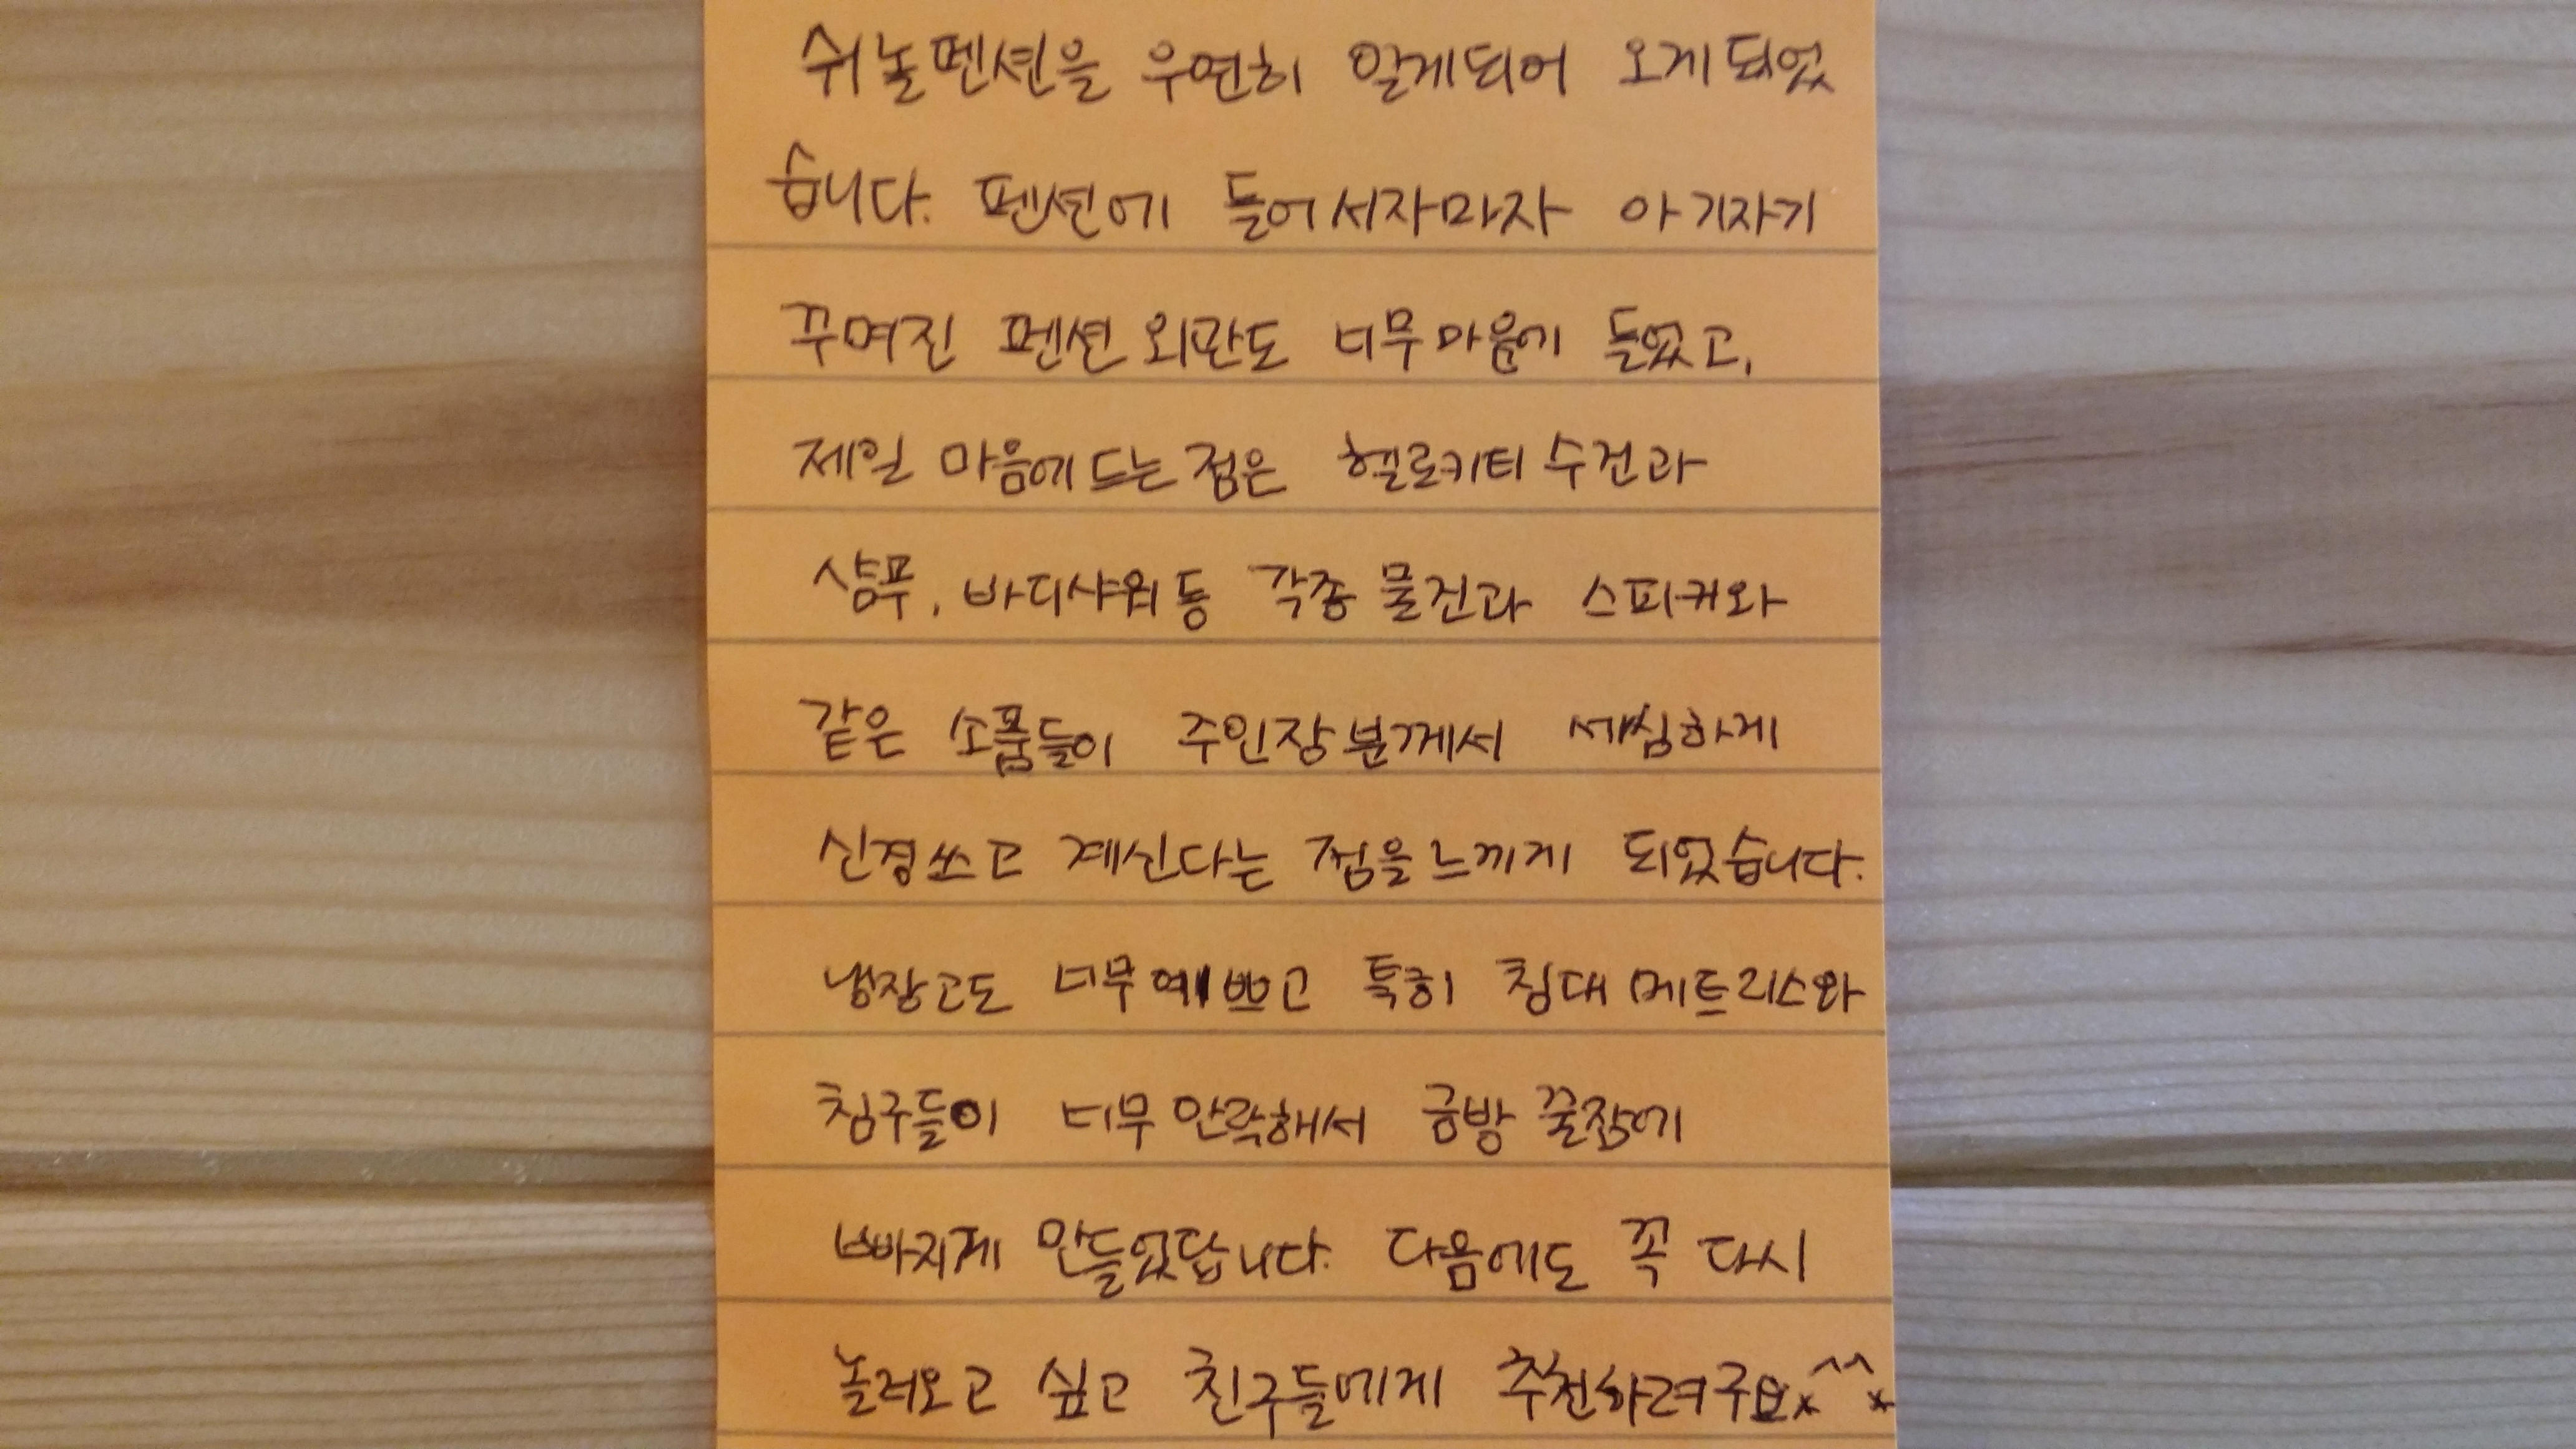 쉬놀펜션을 우연히 알게되어 오게되었
습니다. 펜션에 들어서자마자 아기자기
꾸며진 펜션 외관도 너무마음에 들었고,
제일 마음에드는점은 헬로키티 수건과
샴푸, 바디샤워등 각종 물건과 스피커와
같은 소품들이 주인장분께서 세심하게
신경쓰고 계신다는 점을느끼게 되었습니다.
냉장고도 너무예쁘고 특히 침대메트리스와
침구들이 너무안락해서 금방 꿀잠에
빠지게 만들었답니다. 다음에도 꼭 다시
놀러오고 싶고 친구들에게 추천하려구요*^^*